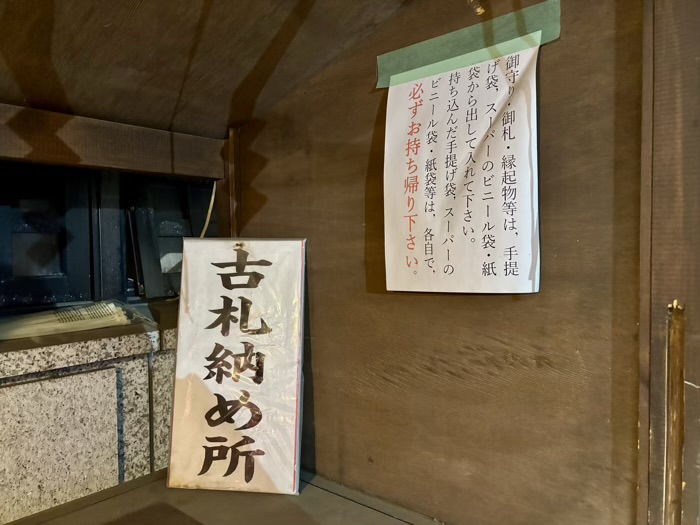 御守り・御札・縁起物等は、手提
げ袋、スーパーのビニール袋・紙
袋から出して入れて下さい。
持ち込んだ手提げ袋、スーパーの
ビニール袋・紙袋等は、各自で、
必ずお持ち帰り下さい。
古札納め所